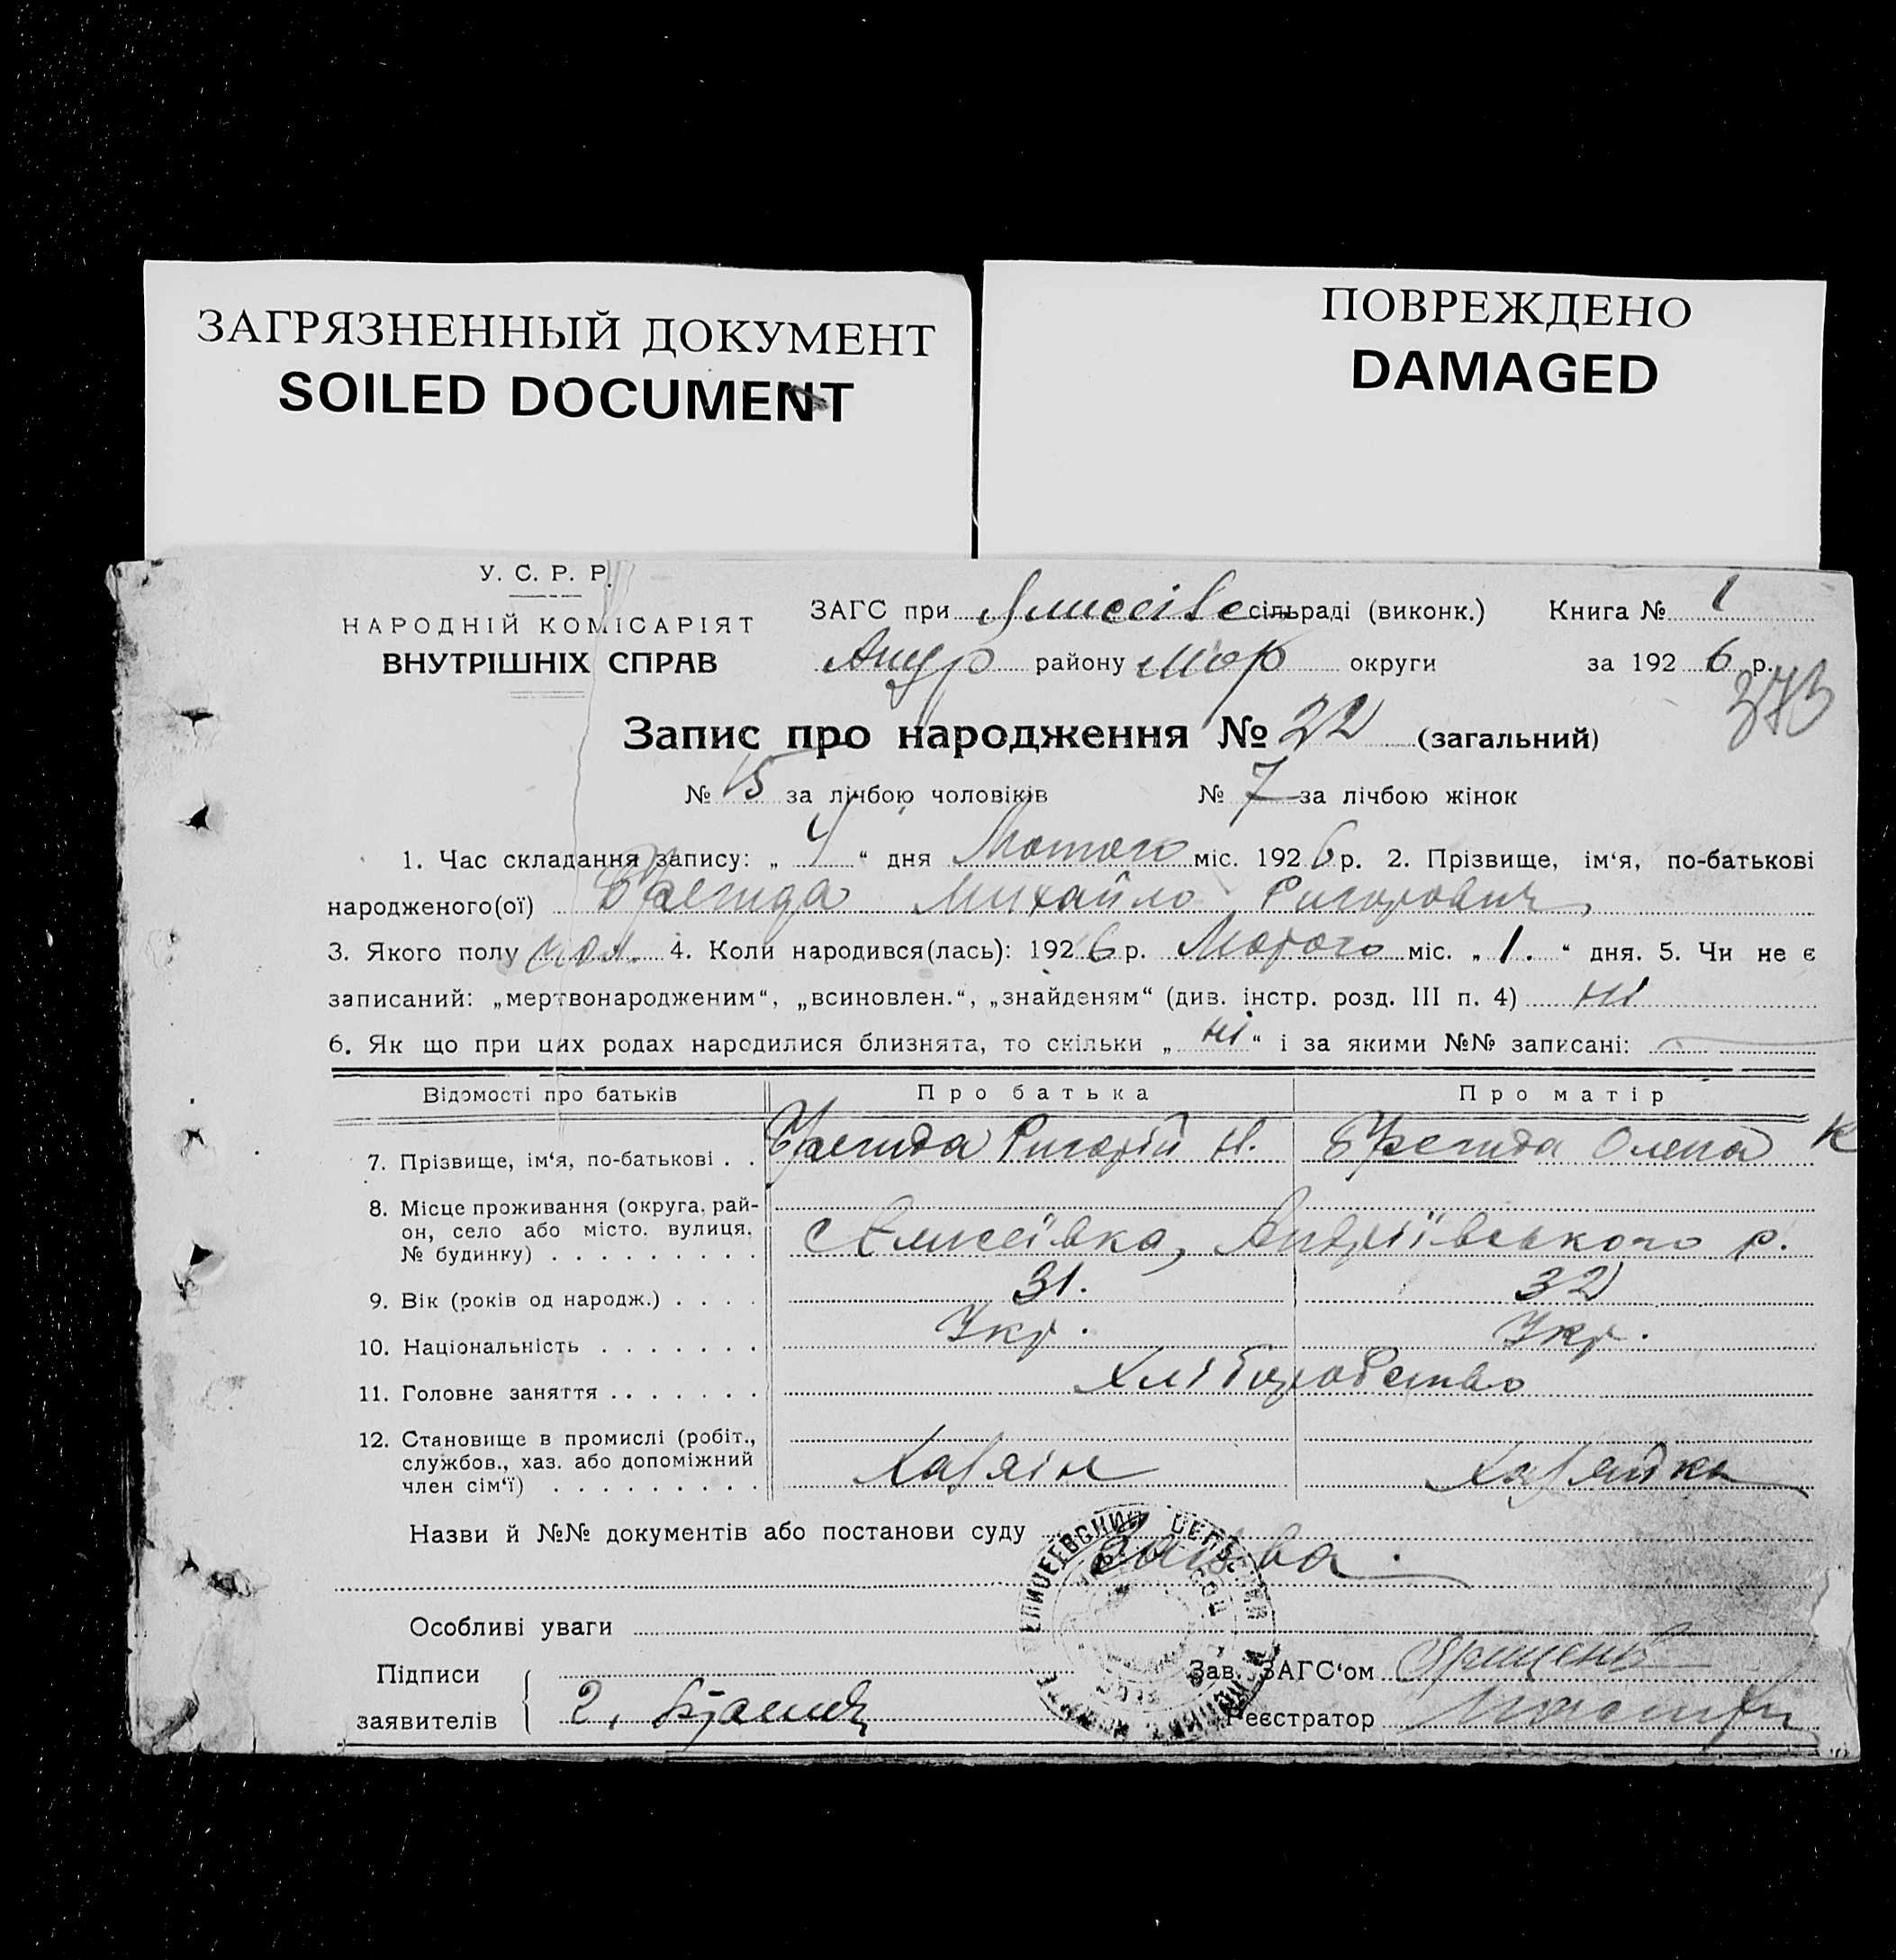 ЗАГРЯЗНЕННЫЙ ДОКУМЕНТ
SOILED DOCUMENT
ПОВРЕЖДЕНО
DAMAGED
У. С. Р. Р.
НАРОДНІЙ КОМІСАРІЯТ
ВНУТРІШНІХ СПРАВ
ЗАГС при сільраді (виконк.) Книга № 1
району округи за 192 6 р.
373
Запис про народження № 22 (загальний)
№ 15 за лічбою чоловіків № 7 за лічбою жінок
1. Час складання запису: „ 4 “ дня Лютого міс. 192 6 р. 2. Прізвище, ім‘я, по-батькові
народженого(ої) Михайло Григорович
3. Якого полу чол. 4. Коли народився(лась): 192 6 р. Лютого міс. „ 1. “ дня. 5. Чи не є
записаний: „мертвонародженим“, „всиновлен.“, „знайденям“ (див. інстр. розд. III п. 4) ні
6. Як що при цих родах народилися близнята, то скільки „ ні “ і за якими №№ записані:
Відомості про батьків Про батька Про матір
7. Прізвище, ім‘я, по-батькові . . Григорій Н. Олена К
8. Місце проживання (округа, рай-
он, село або місто, вулиця,
№ будинку) . . . . . . . . . с Єлисеївка, Андріївського р.
9. Вік (років од народж.) . . . . 31. 32
10. Національність . . . . . . . Укр. Укр.
11. Головне заняття . . . . . . . Хліборобство
12. Становище в промислі (робіт.,
службов., хаз. або допоміжний
член сім‘ї) . . . . . . . . . Хазяїн Хазяйка
Назви й №№ документів або постанови суду Заява.
Особливі уваги
Підписи
заявителів 2.
Зав. ЗАГС‘ом
Реєстратор